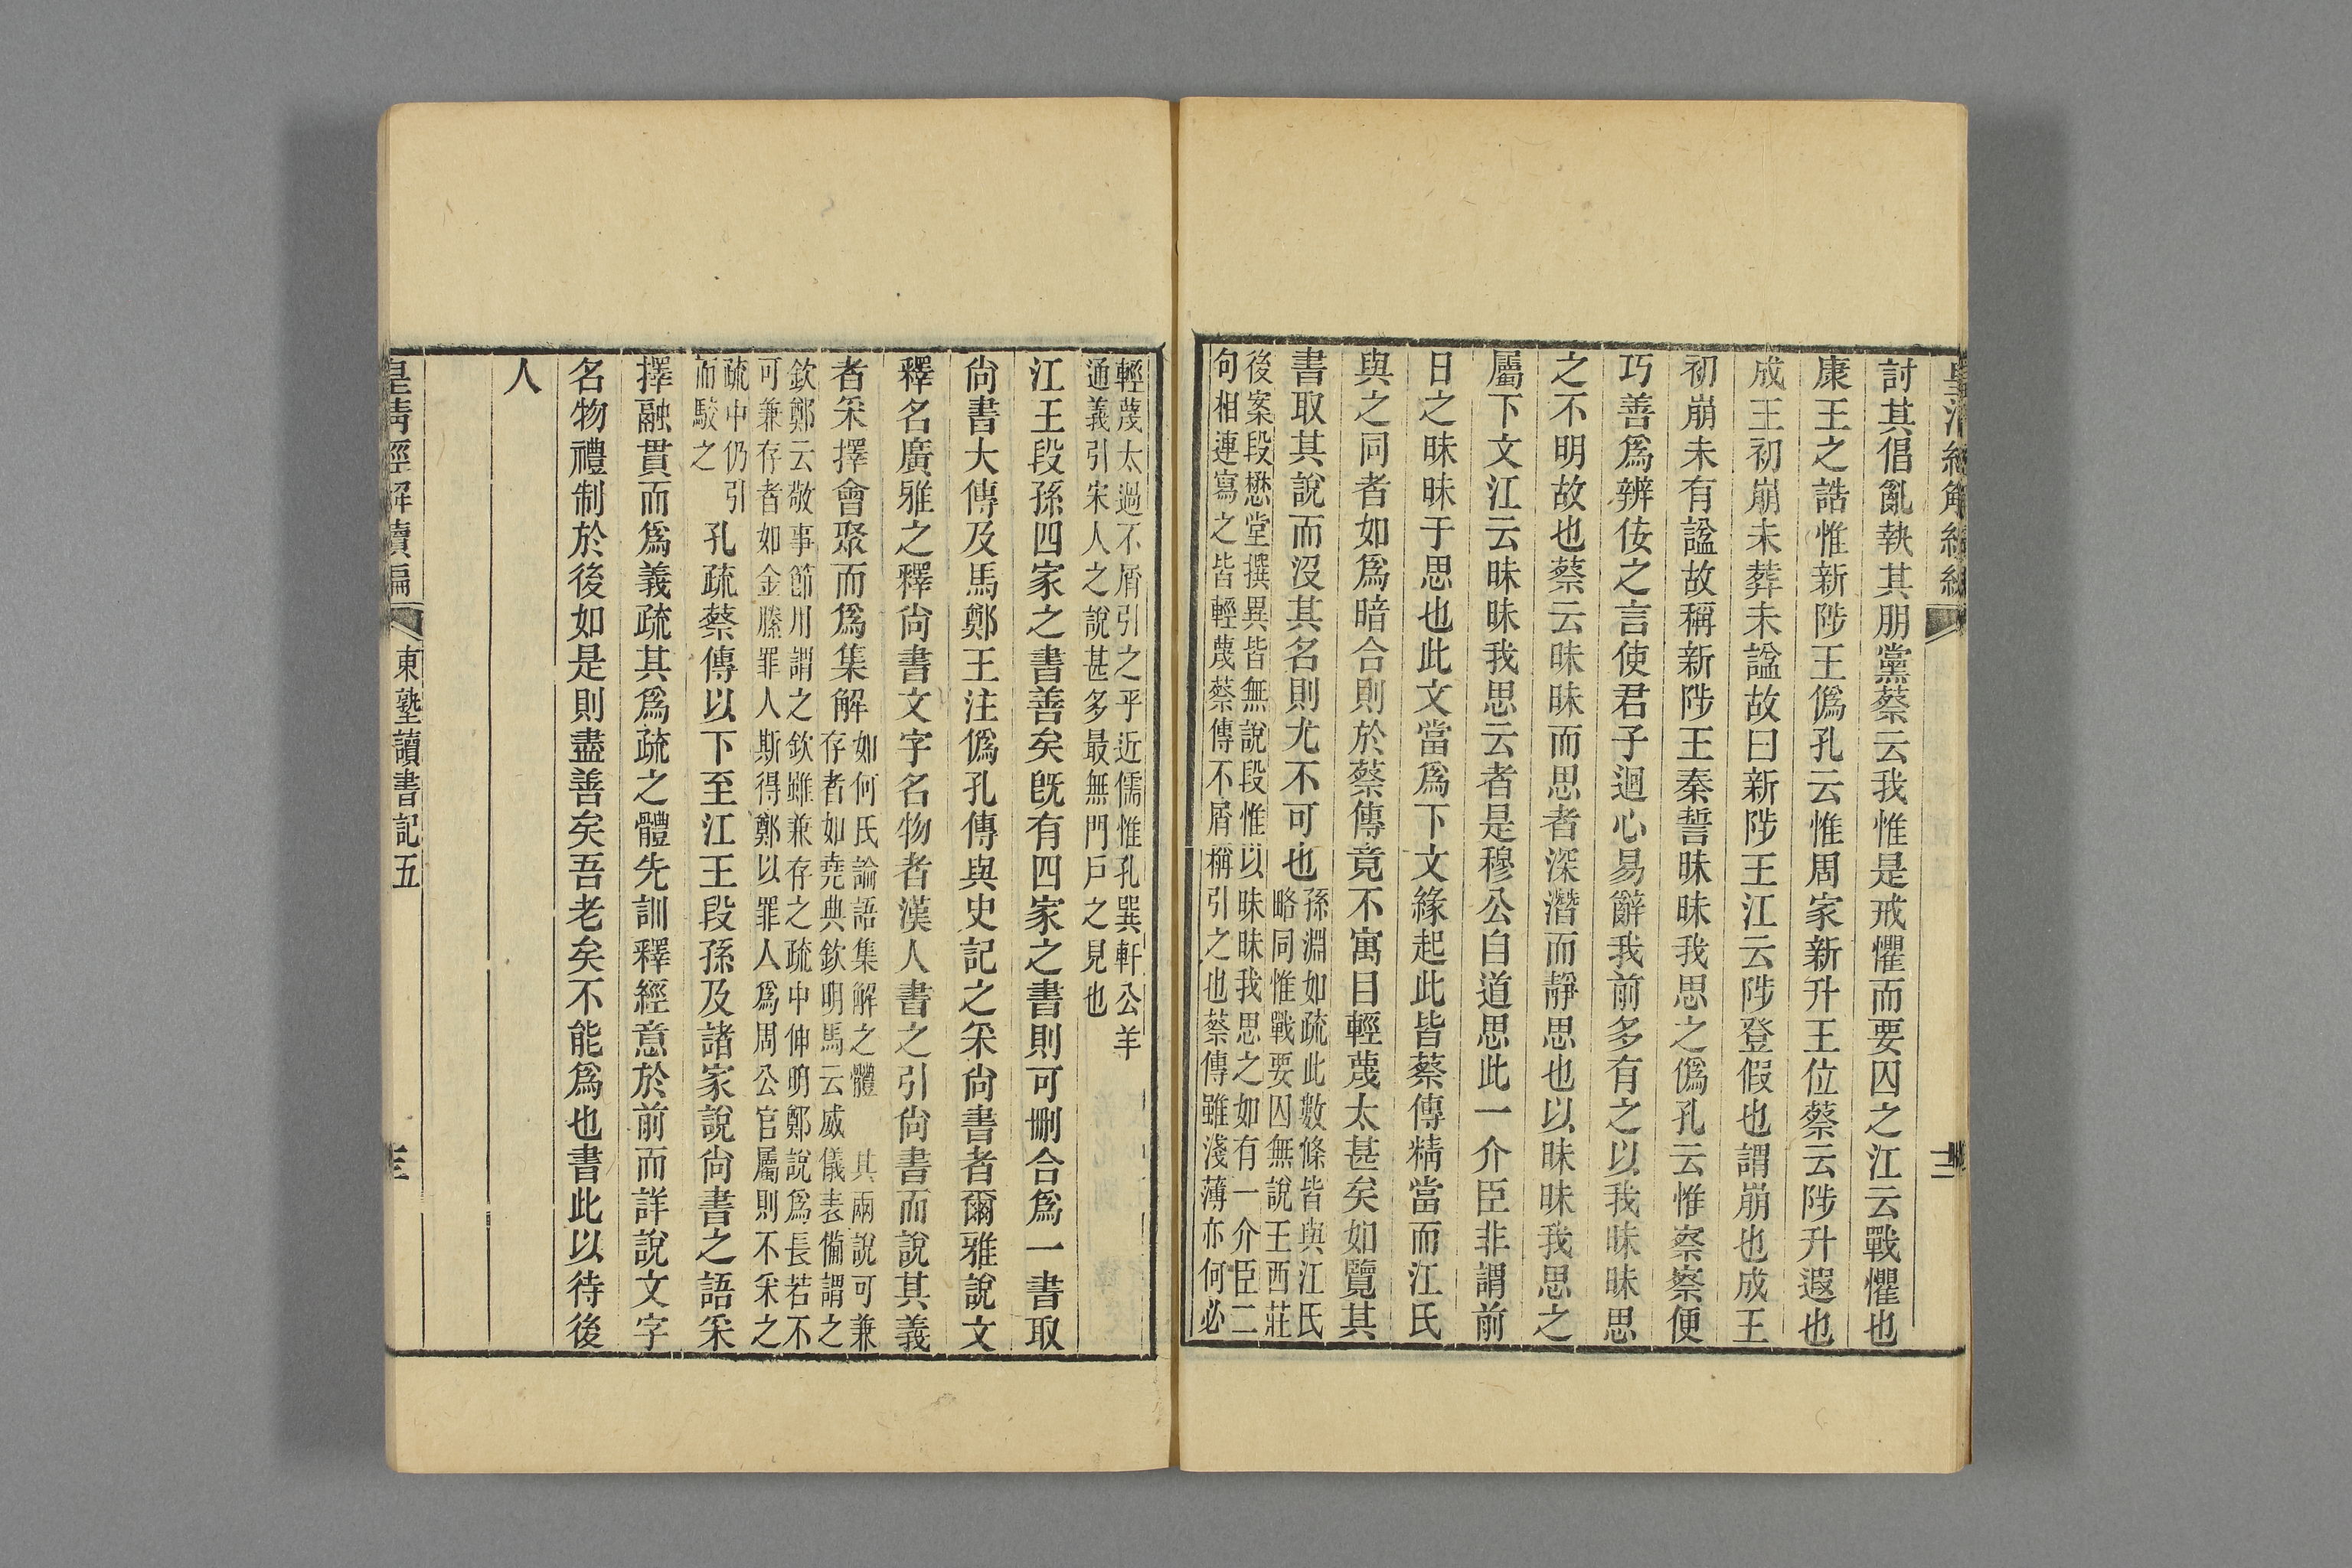 討其倡亂執其朋黨蔡云我惟是戒懼而要囚之江云戰懼也
康王之誥惟新陟王僞孔云惟周家新升王位蔡云陟升遐也
成王初崩未葬未諡故曰新陟王江云陟登假也謂崩也成王
初崩未有諡故稱新陟王秦誓昧昧我思之僞孔云惟察察便
巧善爲辨佞之言使君子迴心易辭我前多有之以我昧昧思
之不明故也蔡云昧昧而思者深潛而靜思也以昧昧我思之
屬下文江云昧昧我思云者是穆公自道思此一介臣非謂前
日之昧昧于思也此文當爲下文緣起此皆蔡傳精當而江氏
與之同者如爲暗合則於蔡傳竟不寓目輕蔑太甚矣如覽其
書取其說而沒其名則尤不可也
孫淵如疏此數條皆與江氏
略同惟戰要囚無說王西莊
後案段懋堂撰異皆無說段惟以昧昧我思之如有一介臣二
句相連寫之皆輕蔑蔡傳不屑稱引之也蔡傳雖淺薄亦何必
輕蔑太過不屑引之乎近儒惟孔巽軒公羊
通義引宋人之說甚多最無門戶之見也
江王段孫四家之書善矣旣有四家之書則可刪合爲一書取
尙書大傳及馬鄭王注僞孔傳與史記之采尙書者爾雅說文
釋名廣雅之釋尙書文字名物者漢人書之引尙書而說其義
者采擇會聚而爲集解
如何氏論語集解之體 其兩說可兼
存者如堯典欽明馬云威儀表備謂之
欽鄭云敬事節用謂之欽雖兼存之疏中伸明鄭說爲長若不
可兼存者如金縢罪人斯得鄭以罪人爲周公官屬則不采之
疏中仍引
而駁之
孔疏蔡傳以下至江王段孫及諸家說尙書之語采
擇融貫而爲義疏其爲疏之體先訓釋經意於前而詳說文字
名物禮制於後如是則盡善矣吾老矣不能爲也書此以待後
人
皇清經解續編
東塾讀書記五